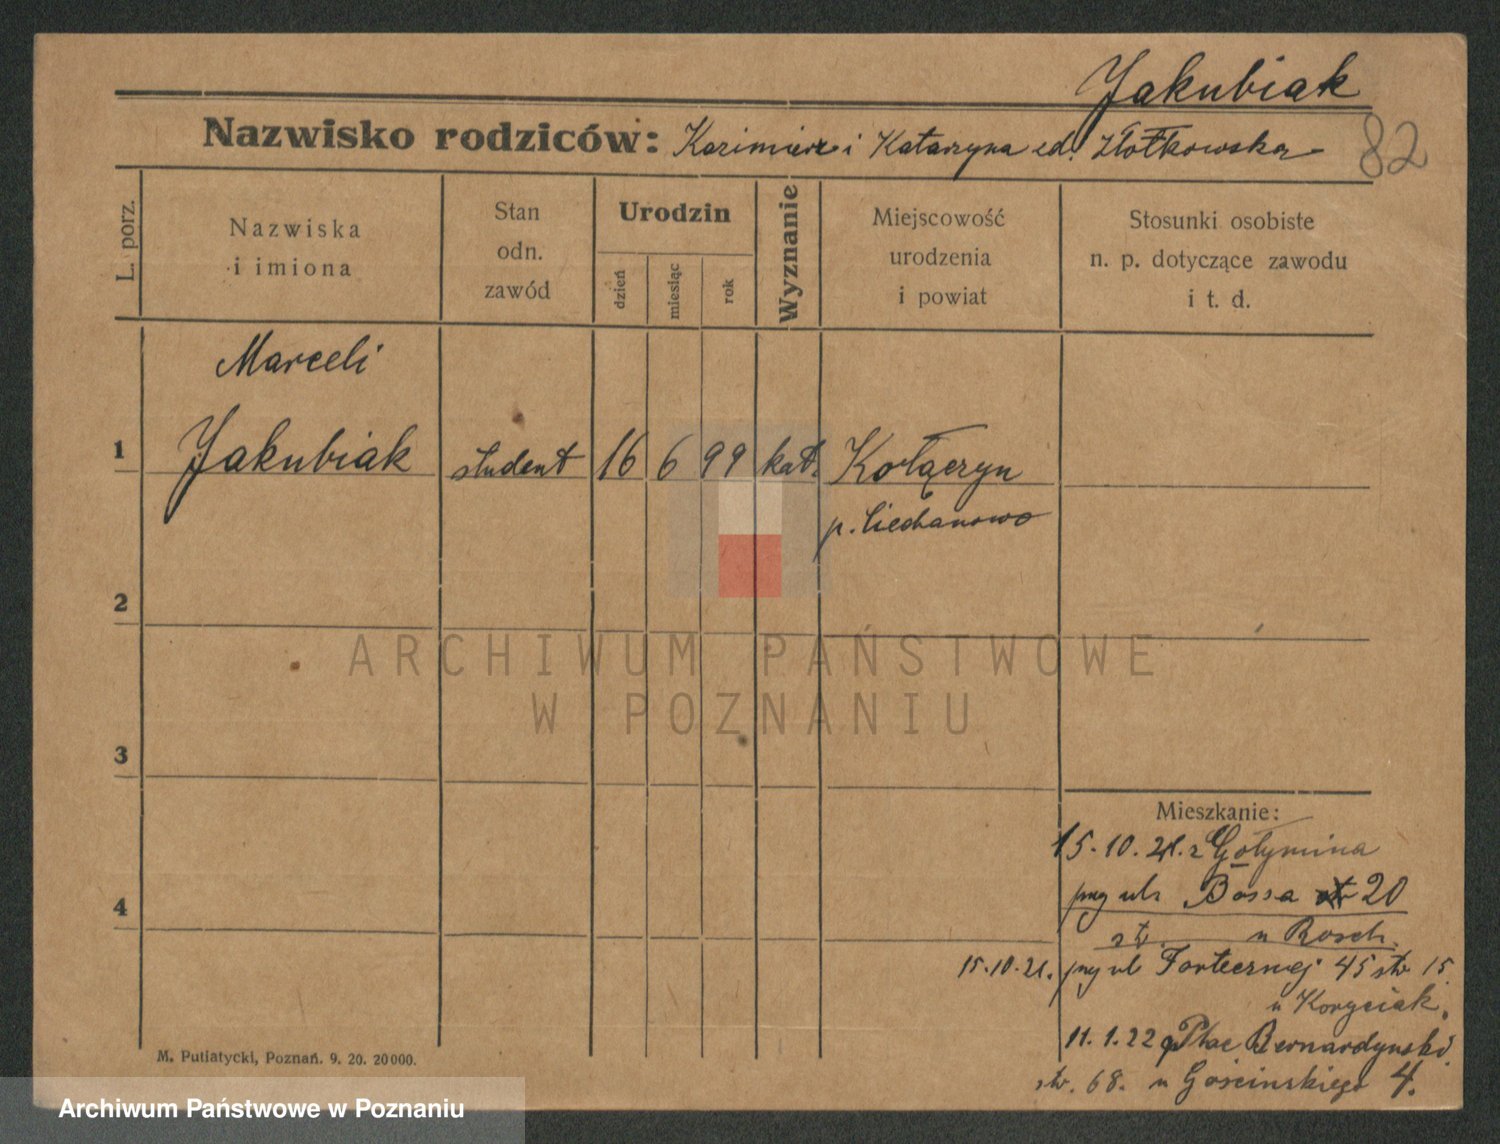 Jakubiak
Nazwisko rodziców: Kazimierz i Katarzyna zd. Złotkowska
82
L. porz.
Nazwiska
i imiona
Stan
odn.
zawód
Urodzin
dzień
miesiąc
rok
Wyznanie
Miejscowość
urodzenia
i powiat
Stosunki osobiste
n. p. dotyczące zawodu
i t. d.
Marceli
1 Jakubiak student 16 6 99 kat. Kołączyn
p. Ciechanowo
2
ARCHIWUM PAŃSTWOWE
W POZNANIU
3
Mieszkanie:
15.10.21. z Gołymina
przy ul. Bossa 20
4
st. u Rosch.
15.10.21. przy ul Fortecznej 45 stw 15
u Koryciak.
11.1.22 Plac Bernardyński
stw. 68. u Gościnskiego 4.
M. Putiatycki, Poznań. 9. 20. 20000.
Archiwum Państwowe w Poznaniu